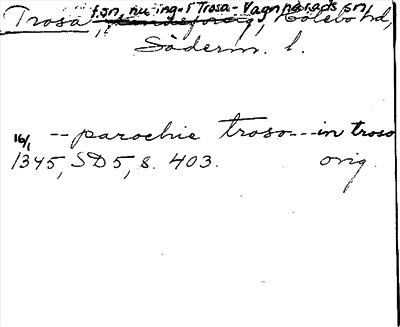 f. sn, nu ing. i Trosa-Vagnhärads sn,
Trosa, Hölebo hd,
Söderm. l.
16/1 -- parochie troso --- in troso
1345, SD 5, s. 403. orig.